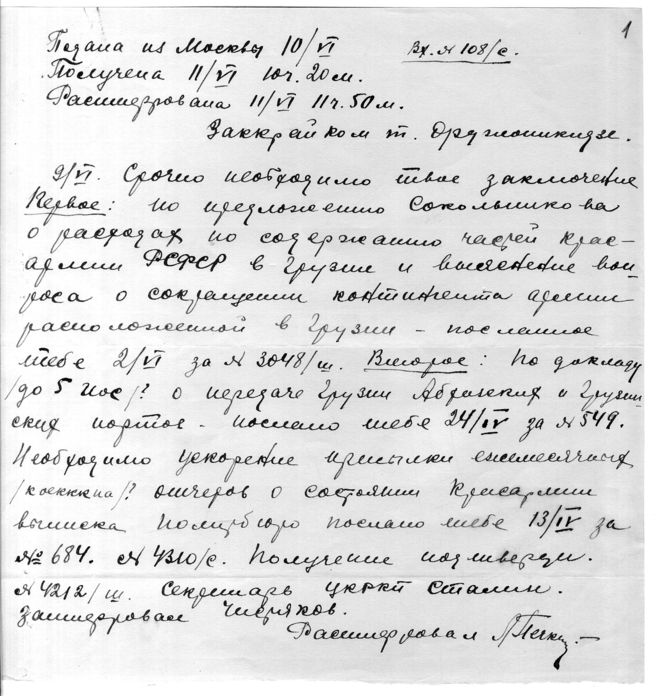 1
Подана из Москвы 10/VI Вх. № 108/с.
Получена 11/VI 10ч. 20м.
Расшифрована 11/VI 11ч. 50м.
Заккрайком т. Орджоникидзе.
9/VI. Срочно необходимо твое заключение
Первое: по предложению Сокольникова
о расходах по содержанию частей Крас-
армии РСФСР в Грузии и выяснение воп-
роса о сокращении контингента армии
расположенной в Грузии – посланное
тебе 2/VI за № 3048/ш. Второе: По докладу
/до 5 /? о передаче Грузии Абхазских и Грузин-
ских портов – послано тебе 24/IV за № 549.
Необходимо ускорение присылки ежемесячных
/? отчеров о состоянии Красармии
выписка Политбюро послано тебе 13/IV за
№ 684. № 4310/с. Получение подтверди.
№ 4212/ш. Секретарь ЦКРКП Сталин.
Зашифровал Чистяков.
Расшифровал